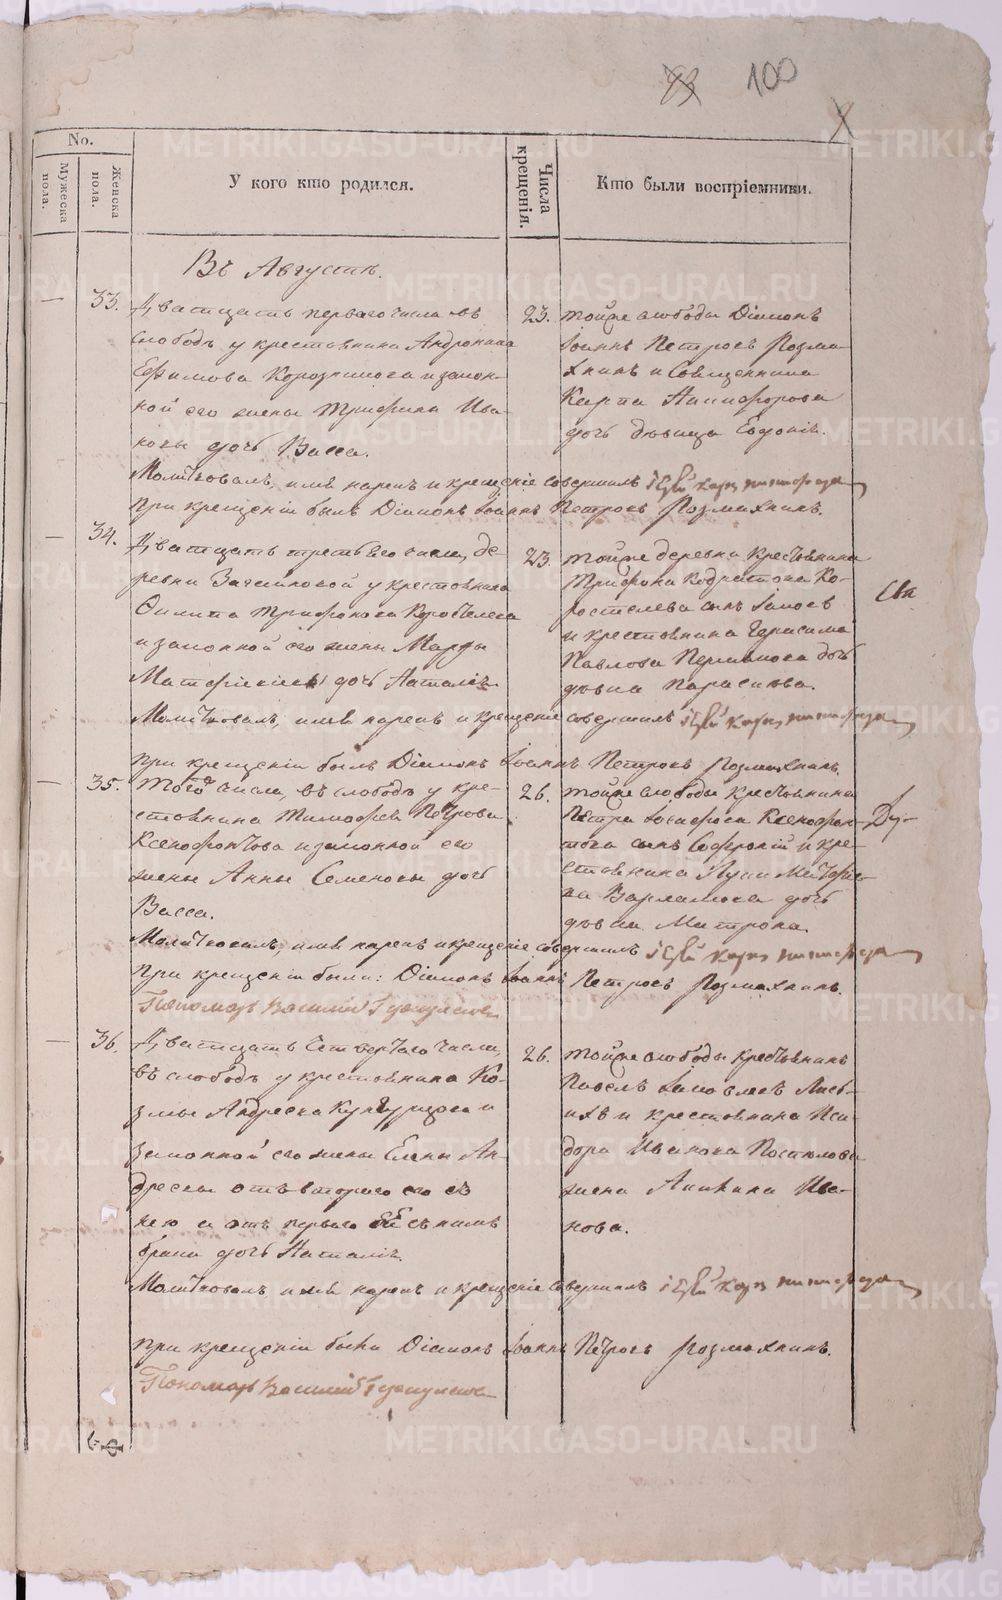 93 100
No.
Мужеска пола.
Женска пола.
У кого кто родился.
Числа крещенія.
Кто были воспріемники.
Въ Августѣ.
33. Дватцать перваго числа въ
слободѣ у крестьянина Андроника
Ефимова и закон-
ной его жены Трифины Ива-
новы дочь Васса.
23. тойже слободы Діаконъ
Іоаннъ Петровъ Розма-
хнинъ и Священника
Карпа Никифорова
дочь дѣвица Евдокія.
Молитвовалъ, имя нарекъ и крещеніе совершилъ Іерей Карпъ Никифоровъ
При крещеніи былъ Діаконъ Іоаннъ Петровъ Розмахнинъ.
34. Дватцать третьяго числа, де-
ревни у крестьянина
Филипа Трифонова Коростелева
и законной его жены Марфы
дочь Наталія.
23. тойже деревни крестьянина
Трифона Кодратова Ко-
ростелева сынъ Іаковъ
и крестьянина Герасима
Павлова дочь
дѣвка Параскова.
Молитвовалъ, имя нарекъ и крещеніе совершилъ Іерей Карпъ Никифоровъ
при крещеніи былъ Діаконъ Іоаннъ Петровъ Розмахнинъ.
35. Того числа, въ слободѣ у кре-
стьянина Тимофея Петрова
Ксенофонтова и законной его
жены Анны Семеновы дочь
Васса.
26. тойже слободы крестьянина
Петра Ксенофон-
това сынъ Софроній и кре-
стьянина Луки
Варламова дочь
дѣвка Матрона.
Молитвовалъ, имя нарекъ и крещеніе совершилъ Іерей Карпъ Никифоровъ
При крещеніи были: Діаконъ Іоаннъ Петровъ Розмахнинъ.
Пономарь Василій
36. Дватцать четвертаго числа,
въ слободѣ у крестьянина Ко-
змы Андреева и
законной его жены Елены Ан-
дреевы отъ втораго его съ
нею а отъ перваго ея съ нимъ
брака дочь Наталія.
26. тойже слободы крестьянинъ
Павелъ Яковлевъ
и крестьянина Иси-
дора Иванова
жена Ива-
нова.
Молитвовалъ имя нарекъ и крещеніе совершилъ Іерей Карпъ Никифоровъ
При крещеніи были Діаконъ Іоаннъ Петровъ Розмахнинъ.
Пономарь Василій
METRIKI.GASO-URAL.RU